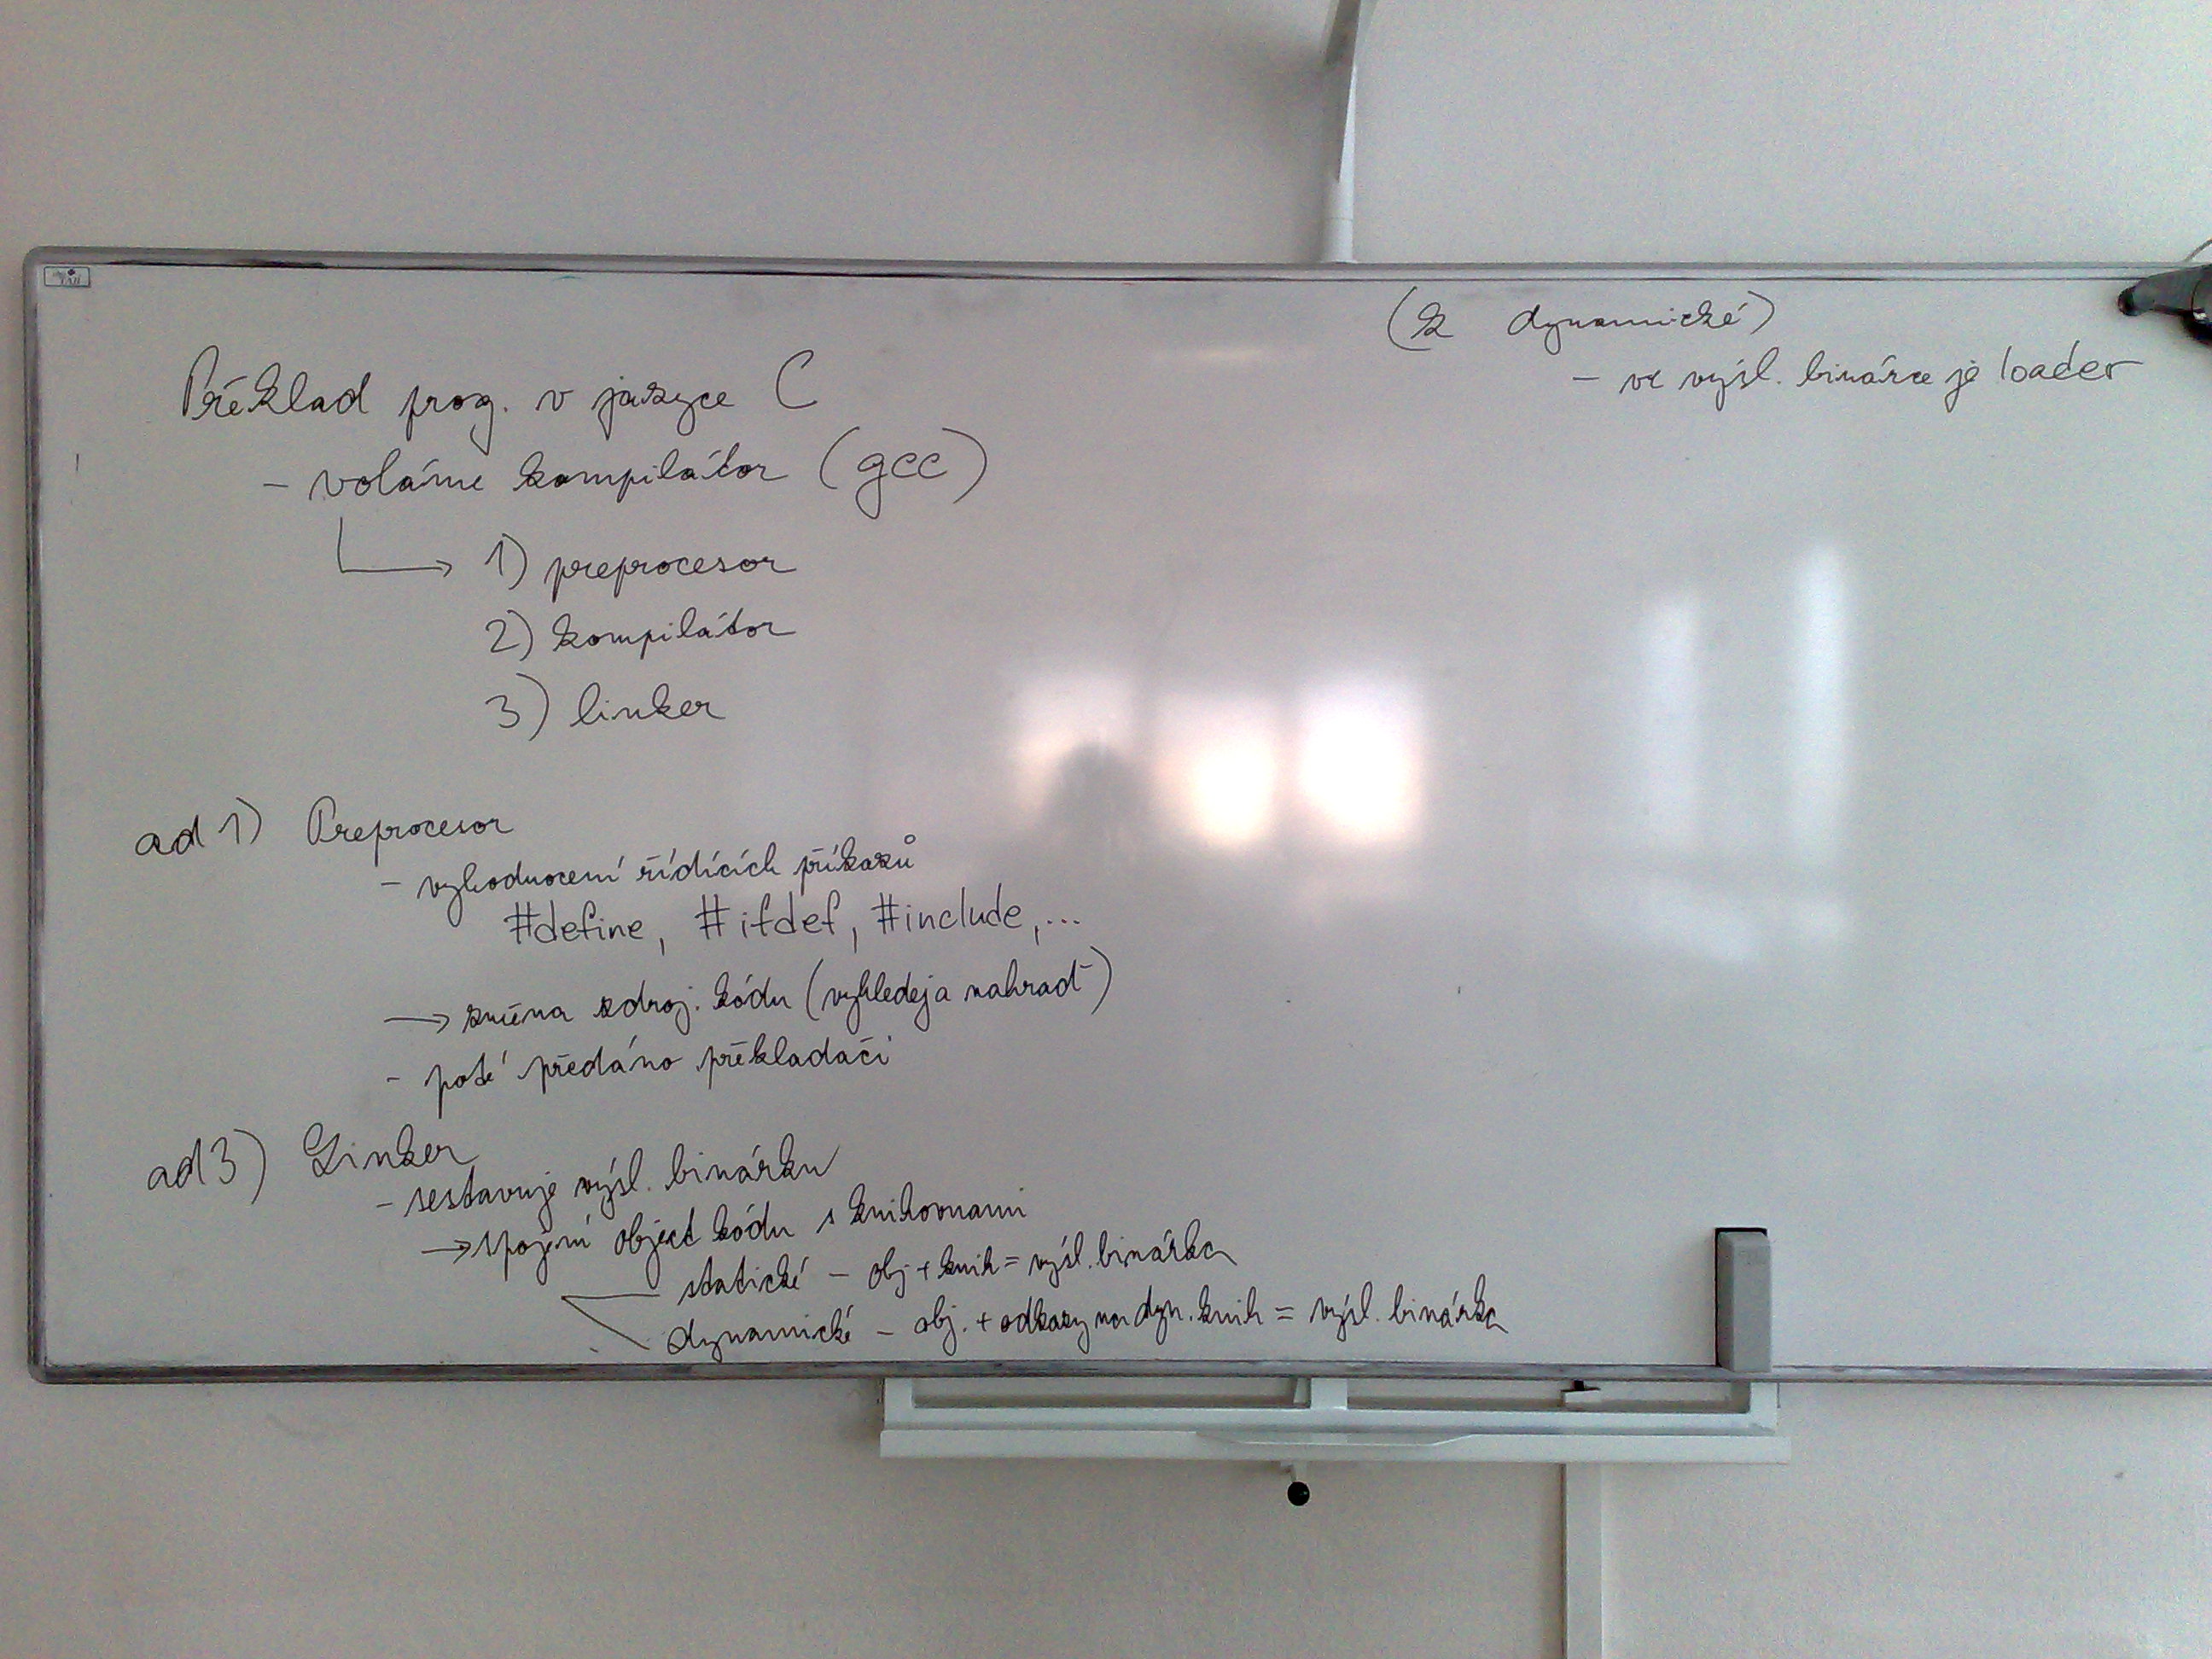 Překlad prog. v jazyce C
- voláme kompilátor (gcc)
1) preprocesor
2) kompilátor
3) linker
ad 1) Preprocesor
- vyhodnocení řídících příkazů
#define, #ifdef, #include, ...
→ změna zdroj. kódu (vyhledej a nahraď)
- poté předáno překladači
ad 3) Linker
- sestavuje výsl. binárku
→ spojení object kódu s knihovnami
statické - obj + knih = výsl. binárka
dynamické - obj. + odkazy na dyn. knih = výsl. binárka
(k dynamické)
- ve výsl. binárce je loader